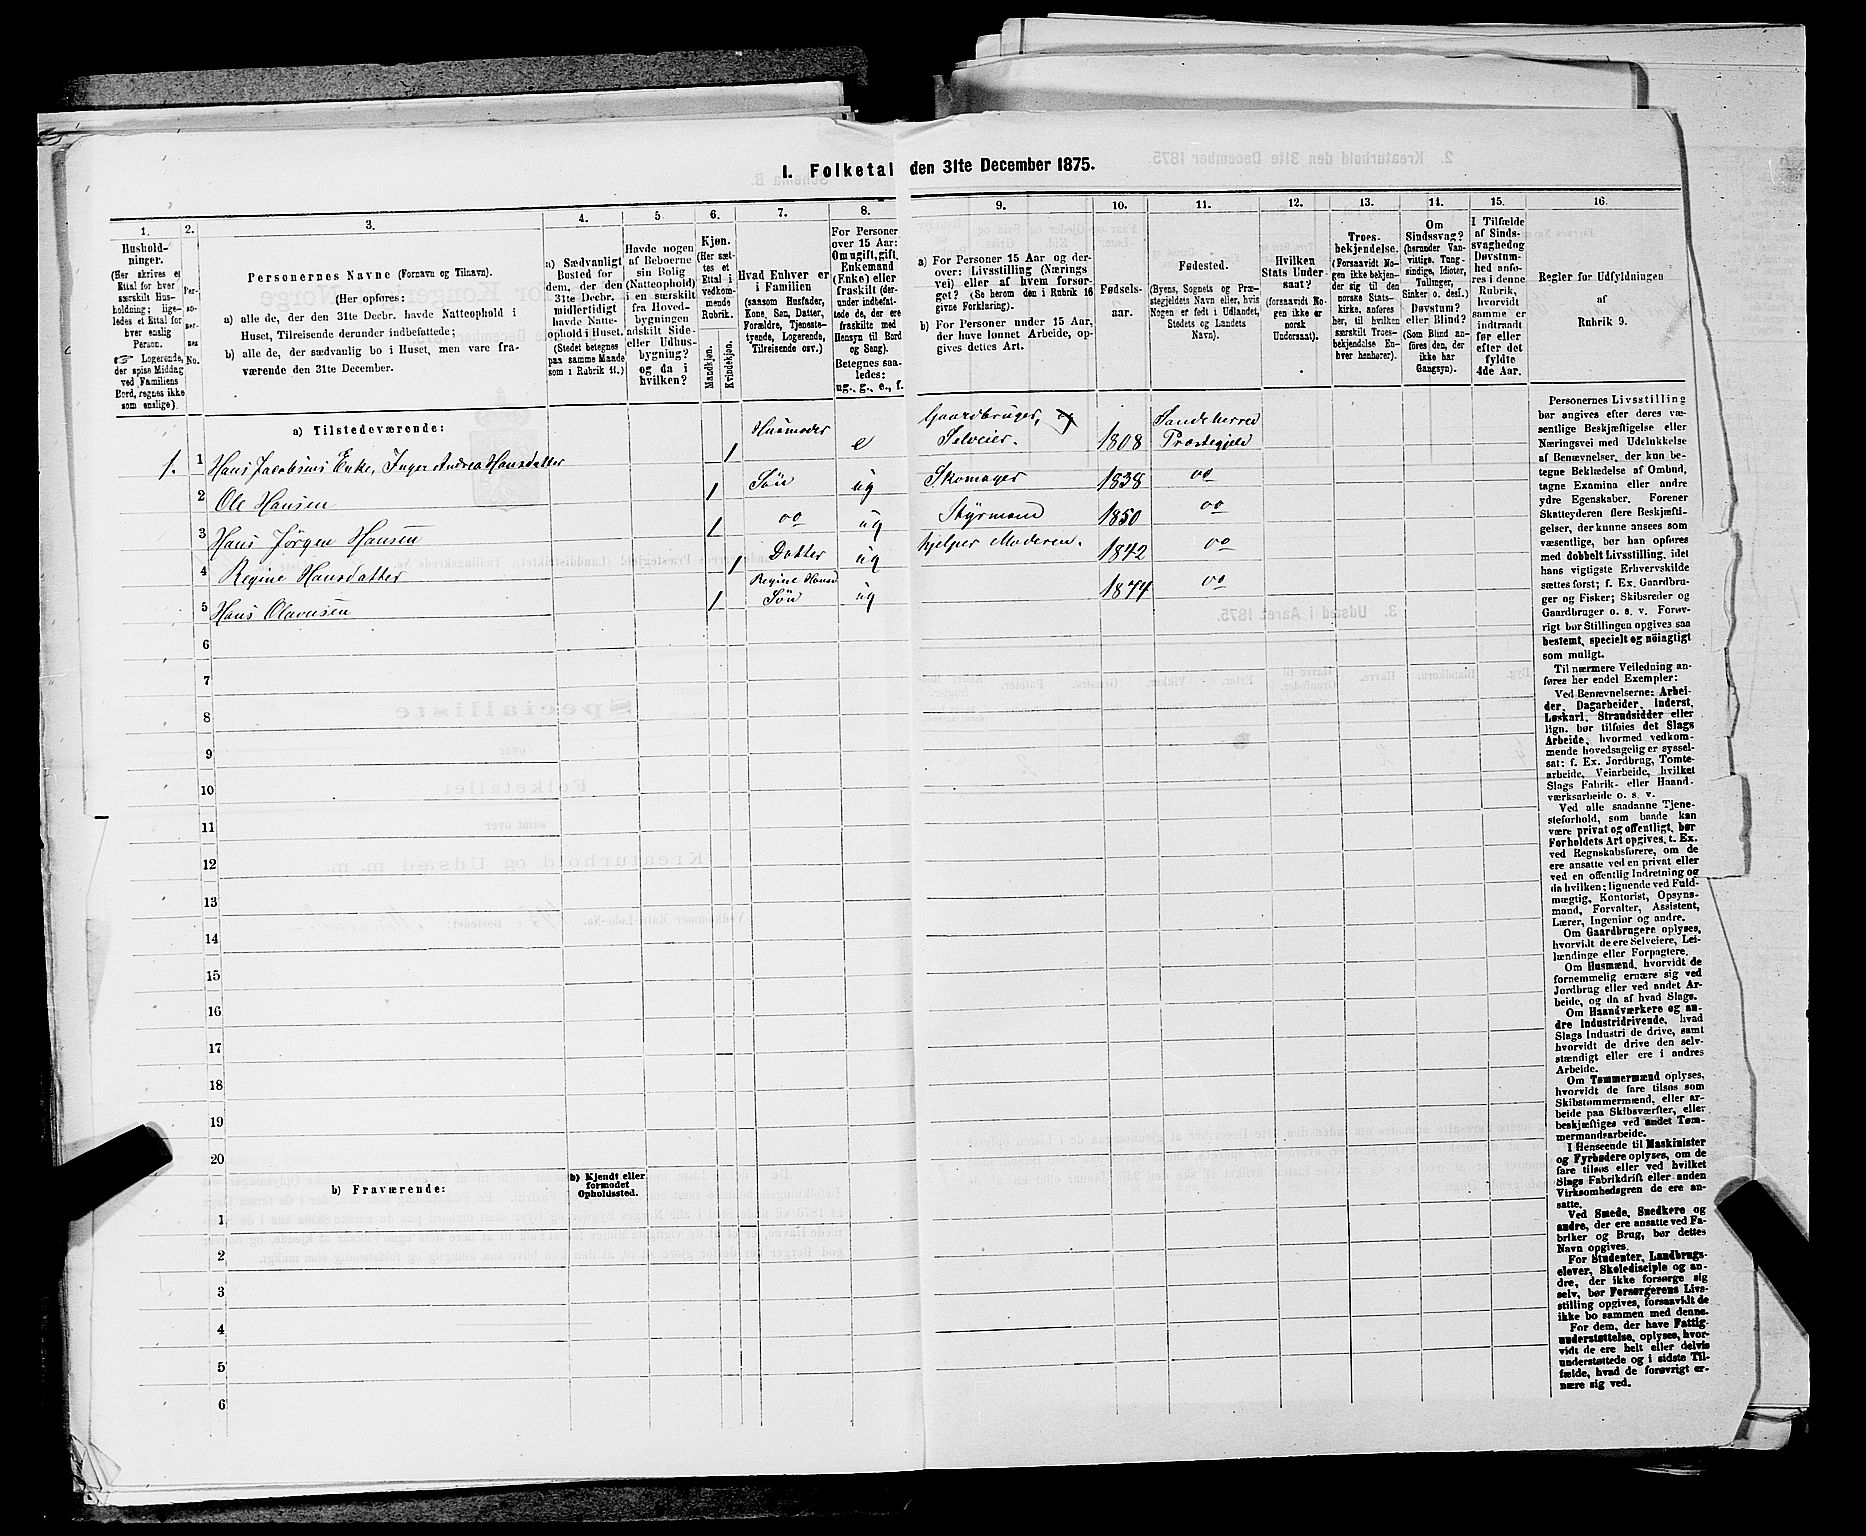 I. Folketal den 31te December 1875.
1. 2. 3. 4. 5 6. 7. 8. 9. 10. 11. 12. 13. 14. 15. 16.
Hushold-
ninger.
(Her skrives et
Ettal for hver
særskilt Hus-
holdning; lige-
ledes et Ettal for
hver enslig
Person.
☞ Logerende,
der spise Middag
ved Familiens
Bord, regnes ikke
som enslige).
Per-
so-
ner-
nes
No.
Personernes Navne (Fornavn og Tilnavn).
(Her opføres:
a) alle de, der den 31te Decbr. havde Natteophold i
Huset, Tilreisende derunder indbefattede;
b) alle de, der sædvanlig bo i Huset, men vare fra-
værende den 31te December.
a) Sædvanligt
Bosted for
dem, der den
31te Decbr.
midlertidigt
havde Natte-
ophold i Huset.
(Stedet betegnes
paa samme Maade
som i Rubrik 11.)
Havde nogen
af Beboerne
sin Bolig
(Natteophold)
i en særskilt
fra Hoved-
bygningen
adskilt Side-
eller Udhus-
bygning?
og da i
hvilken?
Kjøn.
(Her sæt-
tes et
Ettal i
vedkom-
mende
Rubrik.
Mandkjøn.
Kvindekjøn.
Hvad Enhver er
i Familien
(saasom Husfader,
Kone, Søn, Datter,
Forældre, Tjeneste-
tyende, Logerende,
Tilreisende osv.)
For Personer
over 15 Aar:
Om ugift, gift,
Enkemand
(Enke) eller
fraskilt (der-
under indbefat-
tede de, der ere
fraskilte med
Hensyn til Bord
og Seng).
Betegnes saa-
ledes:
ug., g., e., f.
a) For Personer 15 Aar og der-
over: Livsstilling (Nærings
vei) eller af hvem forsør-
get? (Se herom den i Rubrik 16
givne Forklaring).
b) For Personer under 15 Aar,
der have lønnet Arbeide, op-
gives dettes Art.
Fødsels-
aar.
Fødested.
(Byens, Sognets og Præ-
stegjeldets Navn eller, hvis
Nogen er født i Udlandet,
Stedets og Landets
Navn).
Hvilken
Stats Under
saat?
(forsaavidt No-
gen ikke er
norsk
Undersaat).
Troes-
bekjendelse.
(Forsaavidt No-
gen ikke bekjen-
der sig til den
norske Stats-
kirke, anføres
her, til hvilken
særskilt Troes-
bekjendelse En-
hver henhører).
Om
Sindssvag?
(herunder Van-
vittige, Tung-
sindige, Idioter,
Tullinger,
Sinker o. desl.)
Døvstum?
eller Blind?
(Som Blind an-
føres den, der
ikke har
Gangsyn).
I Tilfælde
af Sinds-
svaghed og
Døvstum-
hed anfø-
res i denne
Rubrik,
hvorvidt
samme er
indtraadt
før eller
efter det
fyldte
4de Aar.
Regler for Udfyldningen
af
Rubrik 9.
a) Tilstedeværende:
1. 1 Hans Jacobsens Enke, Inger Andrea Hansdatter 1 Husmoder e Gaardbruger, og Selveier. 1808 Sandeherred Præstegjeld
2 Ole Hansen 1 Søn ug Skomager 1838 do
3 Hans Jørgen Hansen 1 do ug Styrmand 1850 do
4 Regine Hansdatter 1 Datter ug hjelper Moderen. 1842 do
5 Hans Olavesen 1 Regine Hansd Søn ug 1874 do
6
7
8
9
10
11
12
13
14
15
16
17
18
19
20
b) Fraværende:
b) Kjendt eller
formodet
Opholdssted.
1
2
3
4
5
6
Personernes Livsstilling
bør angives efter deres væ-
sentlige Beskjæftigelse eller
Næringsvei med Udelukkelse
af Benævnelser, der kun be-
tegne Beklædelse af Ombud,
tagne Examina eller andre
ydre Egenskaber. Forener
Skatteyderen flere Beskjæfti-
gelser, der kunne ansees som
væsentlige, bør han opføres
med dobbelt Livsstilling, idet
hans vigtigste Erhvervskilde
sættes først; f. Ex. Gaardbru-
ger og Fisker; Skibsreder og
Gaardbruger o. s. v. Forøv-
rigt bør Stillingen opgives saa
bestemt, specielt og nøiagtigt
som muligt.
Til nærmere Veiledning an-
føres her endel Exempler:
Ved Benævnelserne: Arbei-
der, Dagarbeider, Inderst,
Løskarl, Strandsidder eller
lign. bør tilføies det Slags
Arbeide, hvormed vedkom-
mende hovedsagelig er syssel-
sat; f. Ex. Jordbrug, Tomte-
arbeide, Veiarbeide, hvilket
Slags Fabrik- eller Haand-
værksarbeide o. s. v.
Ved alle saadanne Tjene-
steforhold, som baade kan
være privat og offentligt, bør
Forholdets Art opgives, t. Ex.
ved Regnskabsførere, om de
ere ansatte ved en privat eller
ved en offentlig Indretning og
da hvilken; lignende ved Fuld-
mægtig, Kontorist, Opsyns-
mand, Forvalter, Assistent,
Lærer, Ingeniør og andre.
Om Gaardbrugere oplyses,
hvorvidt de ere Selveiere, Lei-
lændinge eller Forpagtere.
Om Husmænd, hvorvidt de
fornemmelig ernære sig ved
Jordbrug eller ved andet Ar-
beide, og da af hvad Slags.
Om Haandværkere og an-
dre Industridrivende, hvad
Slags Industri de drive, samt
hvorvidt de drive den selv-
stændigt eller ere i andres
Arbeide.
Om Tømmermænd oplyses,
hvorvidt de fare tilsøs som
Skibstømmermænd, eller ar-
beide paa Skibsværfter, eller
beskjæftiges ved andet Tøm-
mermandsarbeide.
I Henseende til Maskinister
og Fyrbødere oplyses, om de
fare tilsøs eller ved hvilket
Slags Fabrikdrift eller anden
Virksomhedsgren de ere an-
satte.
Ved Smede, Snedkere og
andre, der ere ansatte ved Fa-
briker og Brug, bør dettes
Navn opgives.
For Studenter, Landbrugs-
elever, Skoledisciple og an-
dre, der ikke forsørge sig
selv, bør Forsørgerens Livs-
stilling opgives, forsaavidt de
ikke bo sammen med denne.
For dem, der have Fattig-
understøttelse, oplyses, hvor-
vidt de ere helt eller delvis
understøttede og i sidste Til-
fælde, hvad de forøvrigt er-
nære sig ved.